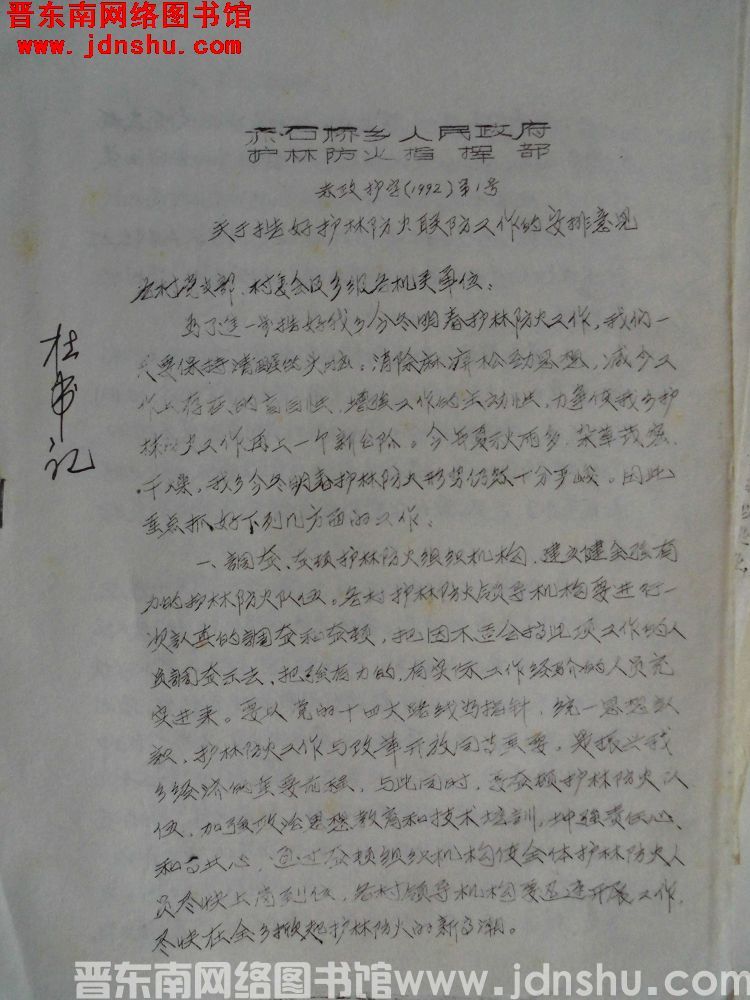 晋东南网络图书馆
www.jdnshu.com
赤石桥乡人民政府
护林防火指挥部
赤政护字(1992)第1号
关于搞好护林防火联防工作的安排意见
各村党支部、村委会及乡级各机关单位：
为了进一步搞好我乡今冬明春护林防火工作，我们一
定要保持清醒的头脑；消除麻痹松劲思想，减少工
作上存在的盲目性，增强工作的主动性，力争使我乡护
林防火工作再上一个新台阶。今年夏秋雨多，杂草茂密、
干燥，我乡今冬明春护林防火形势仍然十分严峻。因此
重点抓好下列几方面的工作：
一、調查、查顿护林防火组织机构，建立健全强有
力的护林防火队伍。各村护林防火领导机构要进行一
次认真的調查和查顿，把因不适合搞此项工作的人
员調查示去，把强有力的，有实际工作经验的人员充
实进来。要以党的十四大路线为指针，统一思想认
识，护林防火工作与改革开放同等重要，是振兴我
乡经济的重要前程，与此同时，要查顿护林防火队
伍，加强政治思想教育和技术培训，增强责任心、
和事业心，通过查顿组织机构使全体护林防火人
员尽快上岗到位，各村领导机构要迅速开展工作，
尽快在全乡掀起护林防火的新高潮。
杜书记
晋东南网络图书馆www.jdnshu.com